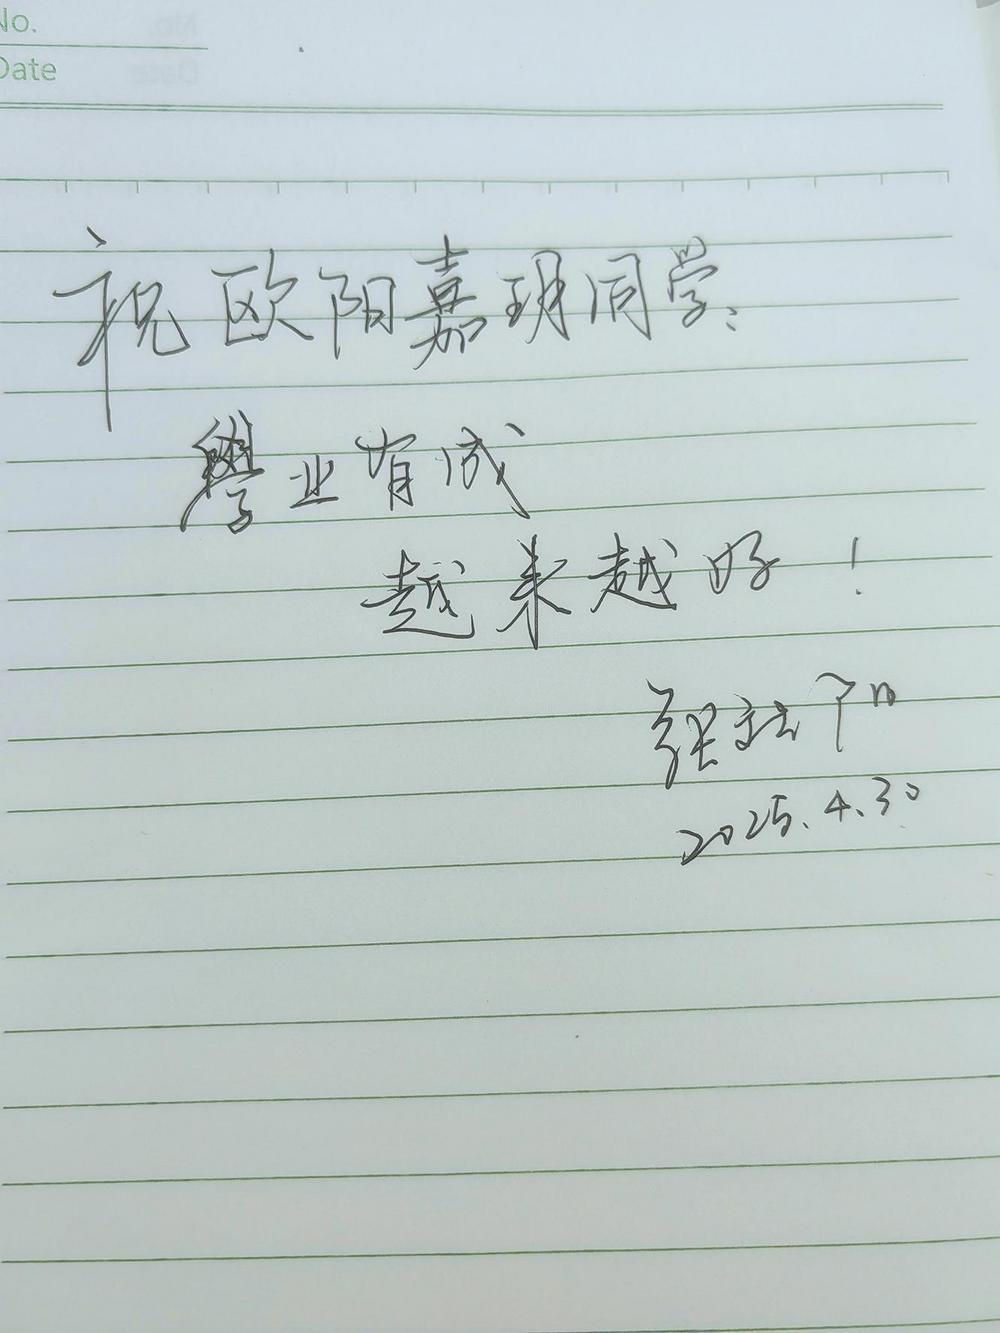 No.
Date
祝欧阳嘉玥同学：
學业有成
越来越好！
张
2025.4.30